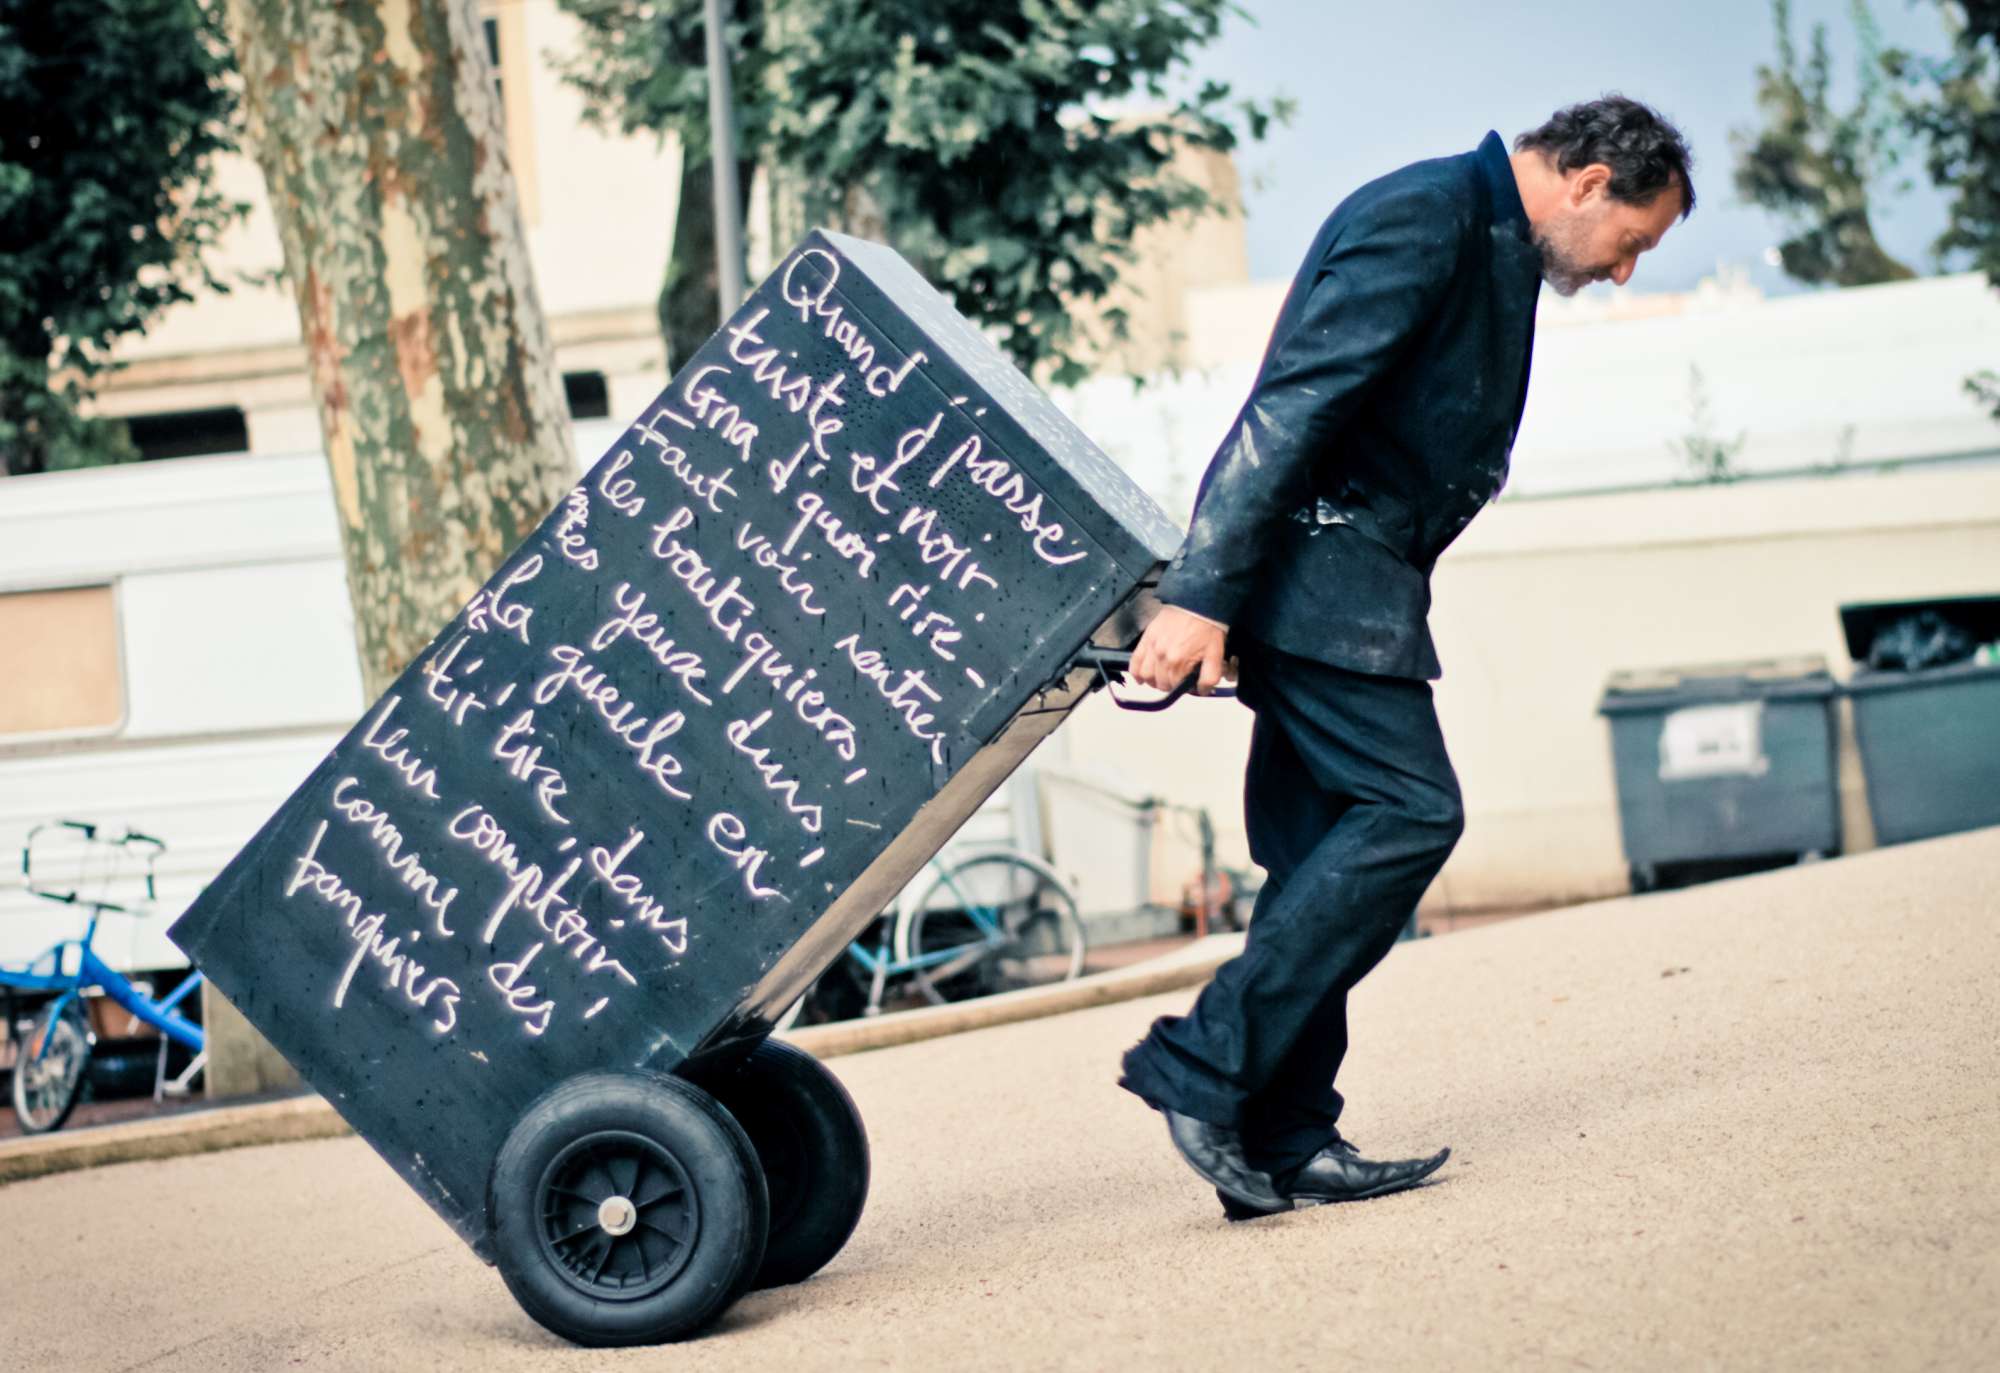 Quand j'passe
triste et noir.
Gna d'quoi rire -
Faut voir rentrer
les boutiquiers,
les yeux durs,
la gueule en
tir'lire, dans
leur comptoir,
comme des
banquiers